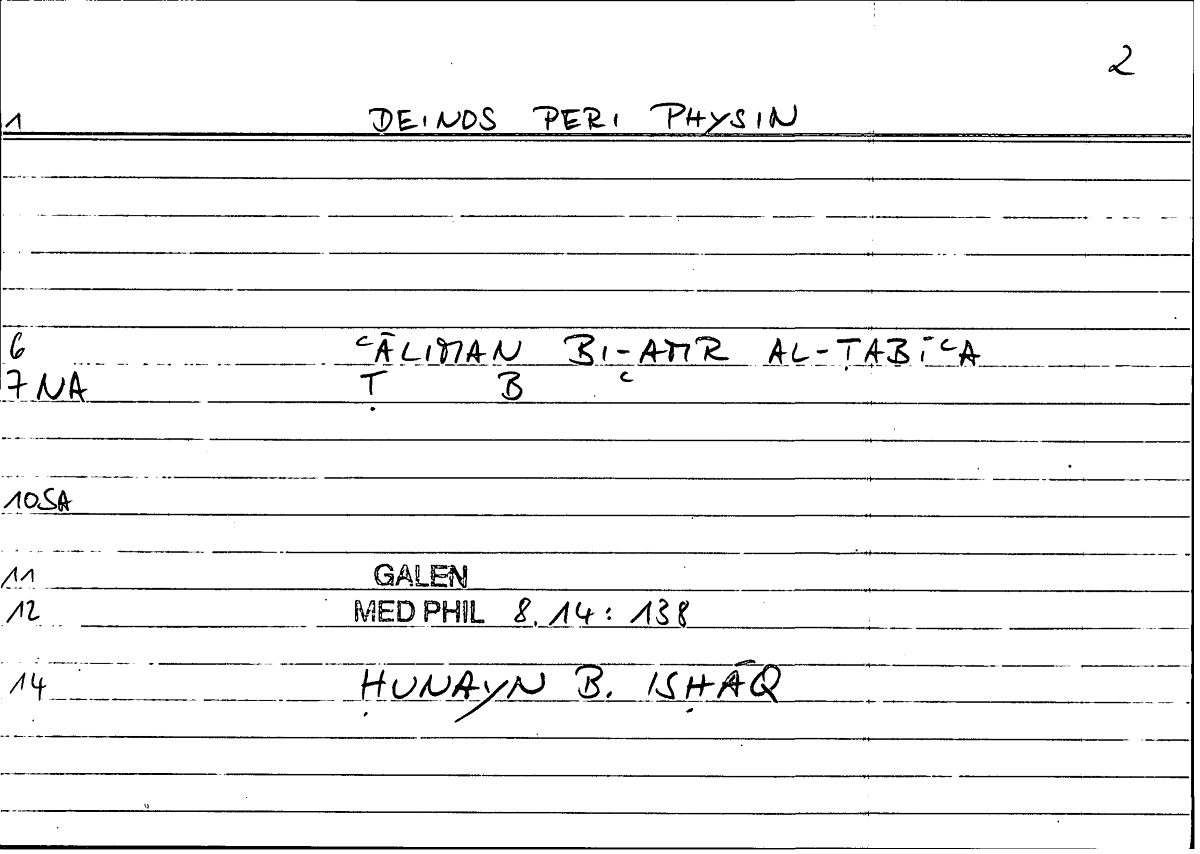 2
1 DEINOS PERI PHYSIN
6 ᶜĀLIMAN BI-AMR AL-ṬABĪᶜA
7 NA Ṭ B ᶜ
10SA
11 GALEN
12 MED PHIL 8.14: 138
14 ḤUNAYN B. ISḤĀQ